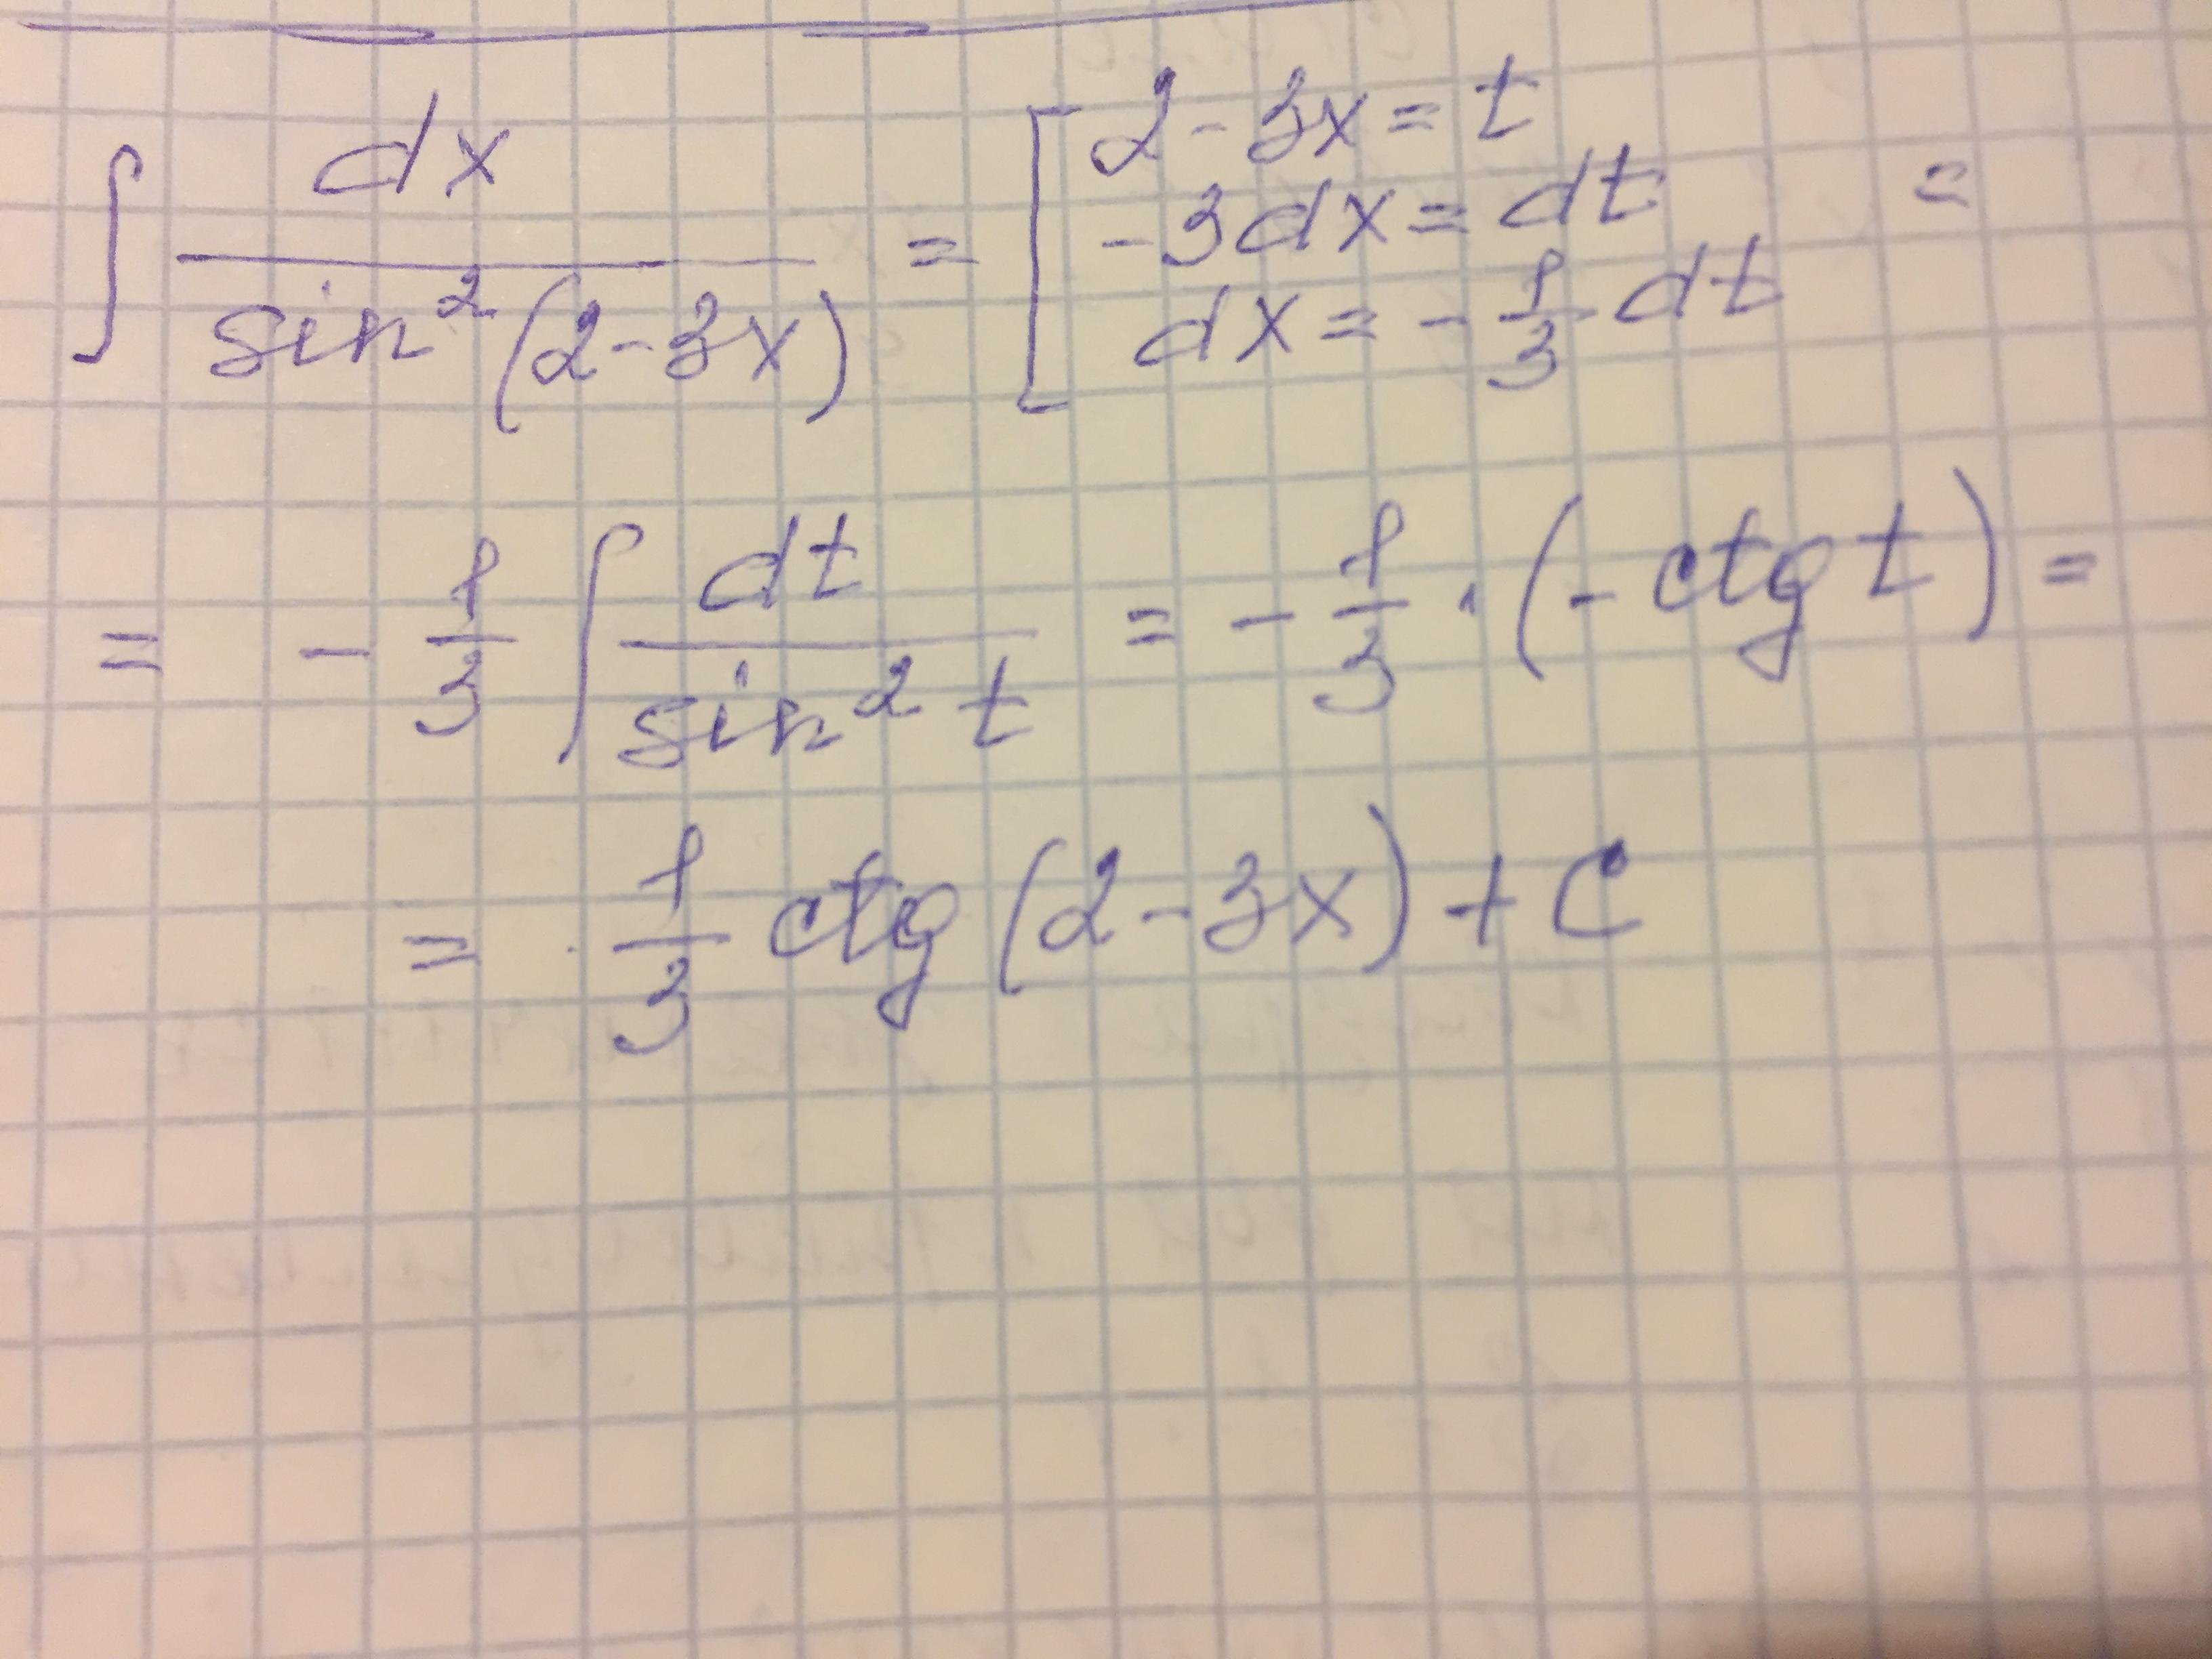 ∫ dx / sin²(2-3x) = [ 2-3x = t
-3dx = dt =
dx = - 1/3 dt
= - 1/3 ∫ dt / sin² t = - 1/3 · (- ctg t) =
= 1/3 ctg (2-3x) + C